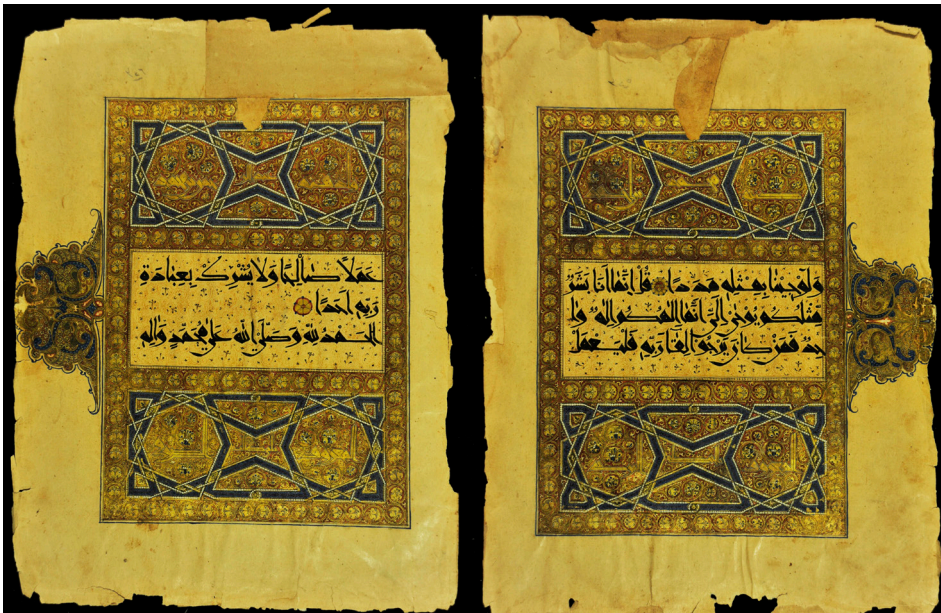 وَلَوْ جِئْنَا بِمِثْلِهِ مَدَدًا قُلْ اِنَّمَا اَنَا بَشَرٌ
مِثْلُكُمْ يُوحَى اِلَيَّ اَنَّمَا اِلَهُكُمْ اِلَهٌ وَا
حِدٌ فَمَنْ كَانَ يَرْجُوا لِقَا رَبِّهِ فَلْيَعْمَلْ
عَمَلًا صَالِحًا وَلَا يُشْرِكْ بِعِبَادَةِ
رَبِّهِ اَحَدًا
الحَمْدُ لِلّهِ وَصَلَّى اللهُ عَلَى مُحَمَّدٍ وَآلِهِ